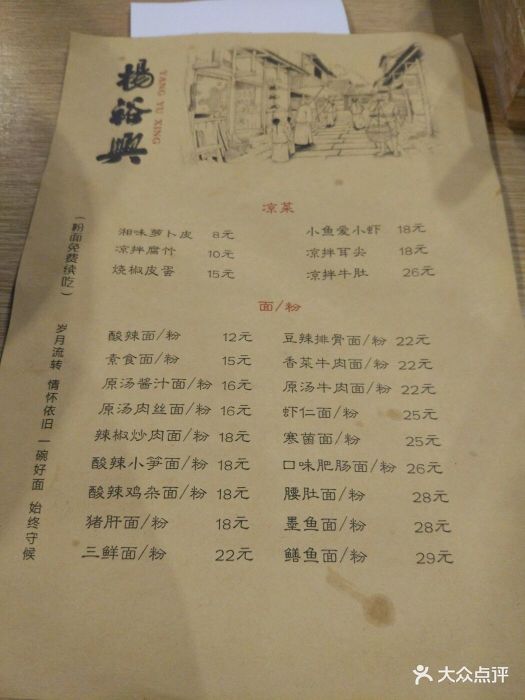 楊裕興
YANG YU XING
凉菜
湘味萝卜皮 8元
小鱼爱小虾 18元
凉拌腐竹 10元
凉拌耳尖 18元
烧椒皮蛋 15元
凉拌牛肚 26元
面/粉
酸辣面/粉 12元
豆辣排骨面/粉 22元
素食面/粉 15元
香菜牛肉面/粉 22元
原汤酱汁面/粉 16元
原汤牛肉面/粉 22元
原汤肉丝面/粉 16元
虾仁面/粉 25元
辣椒炒肉面/粉 18元
寒菌面/粉 25元
酸辣小笋面/粉 18元
口味肥肠面/粉 26元
酸辣鸡杂面/粉 18元
腰肚面/粉 28元
猪肝面/粉 18元
墨鱼面/粉 28元
三鲜面/粉 22元
鳝鱼面/粉 29元
（粉面免费续吃）
岁月流转 情怀依旧 一碗好面 始终守候
大众点评